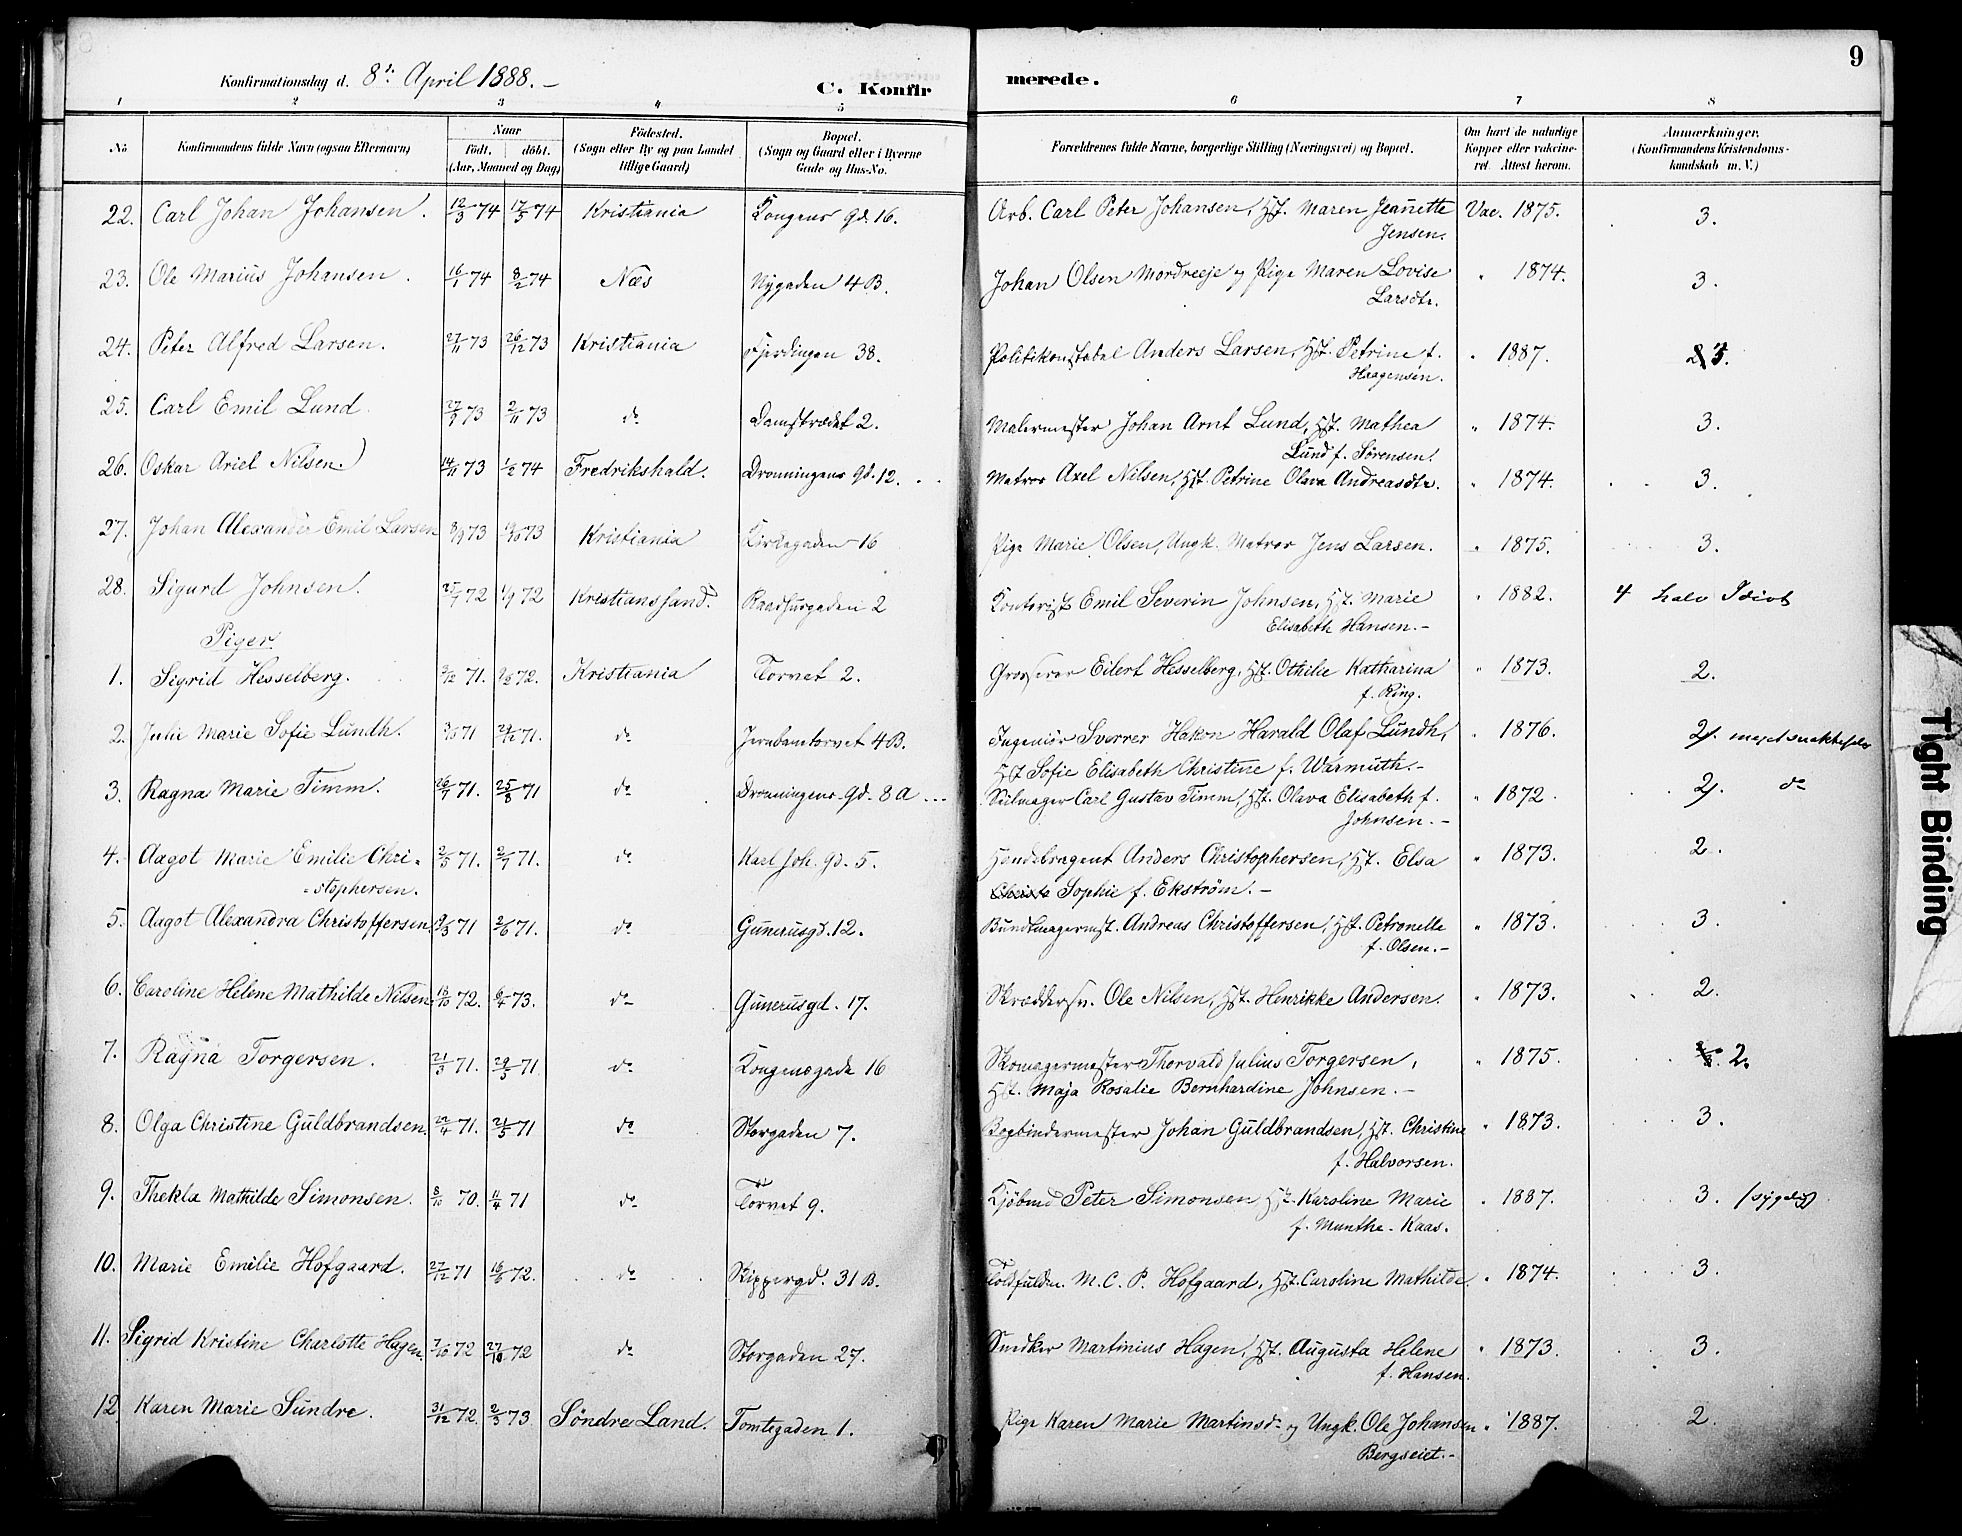 9
Konfirmationsdag d. 8de April 1888. –
C. Konfirmerede.
1 2 3 4 5 6 7 8
No
Konfirmandens fulde Navn (ogsaa Efternavn)
Naar
födt. döbt.
(Aar, Maaned og Dag)
Födested.
(Sogn eller By og paa Landet tillige Gaard)
Bopæl.
(Sogn og Gaard eller i Byerne Gade og Hus-No.
Forældrenes fulde Navne, borgerlige Stilling (Næringsvei) og Bopæl.
Om havt de naturlige Kopper eller vakcineret. Attest herom.
Anmærkninger.
(Konfirmandens Kristendomskundskab m. V.)
22. Carl Johan Johansen. 12/3 74 17/5 74 Kristiania Kongens gd. 16. Arb. Carl Peter Johansen, Hst. Maren Jeanette Vac. 1875. 3.
Jensen.
23. Ole Marius Johansen. 16/1 74 8/2 74 Næs Nygaden 4 B. Johan Olsen Mordreeje og Pige Maren Lovise " 1874. 3.
Larsdtr.
24. Peter Alfred Larsen. 27/11 73 26/12 73 Kristiania Fjerdingen 38. Politikonstabel Anders Larsen, Hst. Petrine f. " 1887. 3.
Haagensen.
25. Carl Emil Lund. 27/9 73 2/11 73 do Damstrædet 2. Malermester Johan Arnt Lund, Hst. Mathea " 1874. 3.
Lund f. Sørensen.
26. Oskar Ariel Nilsen. 14/11 73 1/2 74 Fredrikshald. Dronningens gd. 12. Matros Axel Nilsen, Hst. Petrine Olava Andreasdtr. " 1874. 3.
27. Johan Alexander Emil Larsen 8/9 73 73 Kristiania Kirkegaden 16 Pige Marie Olsen, Ungk. Matros Jens Larsen. " 1875. 3.
28. Sigurd Johnsen. 25/7 72 1/9 72 Kristianssand. Raadhusgaden 2 Kontorist Emil Severin Johnsen, Hst. Marie " 1882. 4 halv Idiot
Elisabeth Hansen. –
Piger.
1. Sigrid Hesselberg. 71. 72. Kristiania Torvet 2. Grosserer Eilert Hesselberg, Hst. Othilie Katharina " 1873. 2.
f. Ring.
2. Julie Marie Sofie Lundh. 71 71. do Jernbantorvet 4 B. Ingeniör Sverrer Hakon Harald Olaf Lundh, " 1876. 2.
Hst Sofie Elisabeth Christine f. Warmuth. –
3. Ragna Marie Timm. 26/7 71. 25/8 71 do Dronningens gd. 8 a Seilmager Carl Gustav Timm, Hst. Olava Elisabeth f. " 1872. 2. do
Johnsen. –
4. Aagot Marie Emilie Chri- 71. 71. do Karl Joh. gd. 5. Handelsagent Anders Christophersen, Hst. Elsa " 1873. 2.
-stophersen. Sophie f. Ekström. –
5. Aagot Alexandra Christoffersen 71 2/6 71. do Gunerusgd. 12. Bundtmagermst. Andreas Christoffersen, Hst. Petronelle " 1873. 3.
f. Olsen. –
6. Caroline Helene Mathilde Nilsen 13/10 72. 6/4 73. do Gunerusgd. 17. Skræddersv. Ole Nilsen, Hst. Henrikke Andersen. " 1873. 2.
7. Ragna Torgersen. 21/3 71. 29/5 71 do Kongensgade 16 Skomagermester Thorvald Julius Torgersen, " 1875. 2.
Hst. Maja Rosalie Bernhardine Johnsen. –
8. Olga Christine Guldbrandsen. 22/4 71. 21/5 71 do Storgaden 7. Bogbindermester Johan Guldbrandsen, Hst. Christine " 1873. 3.
f. Halvorsen.
9. Thekla Mathilde Simonsen. 8/10 70. 11/4 71 do Torvet 9. Kjöbmd Peter Simonsen, Hst. Karoline Marie " 1887. 3. (sygelig)
f. Munthe-Kaas.
10. Marie Emilie Hofgaard. 27/12 71 16/6 72. do Skippergd. 31 B. Toldfuldm. M. C. P. Hofgaard, Hst. Caroline Mathilde. " 1874. 3.
11. Sigrid Kristine Charlotte Hagen. 7/10 72 27/10 72 do Storgaden 27. Snedker Martinius Hagen, Hst. Augusta Helene " 1873. 3.
f. Hansen.
12. Karen Marie Sundre. 31/12 72. 2/3 73. Söndre Land. Tomtegaden 1. Pige Karen Marie Martinsdr og Ungk. Ole Johansen " 1887. 2.
Bergseiet. –
Tight Binding